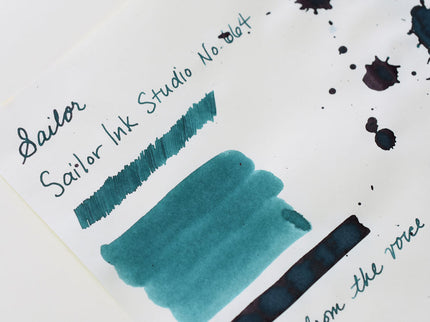 Sailor
Sailor Ink Studio No. 064
from the voice